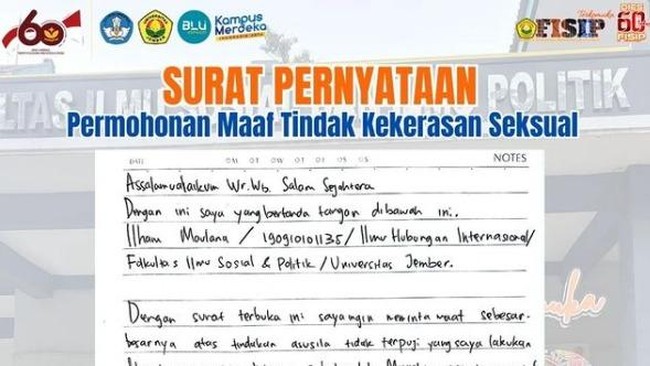 60
BLU
Kampus
Merdeka
INDONESIA JAYA
FISIP
DIES
60
FISIP
LTAS ILMU POLITIK
SURAT PERNYATAAN
Permohonan Maaf Tindak Kekerasan Seksual
DATE NOTES
Assalamualaikum Wr. Wb. Salam Sejahtera
Dengan ini saya yang bertanda tangan dibawah ini.
Ilham Maulana / 190910101135 / Ilmu Hubungan Internasional/
Fakultas Ilmu Sosial & Politik / Universitas Jember.
Dengan surat terbuka ini saya ingin meminta maaf sebesar-
besarnya atas tindakan asusila tidak terpuji yang saya lakukan